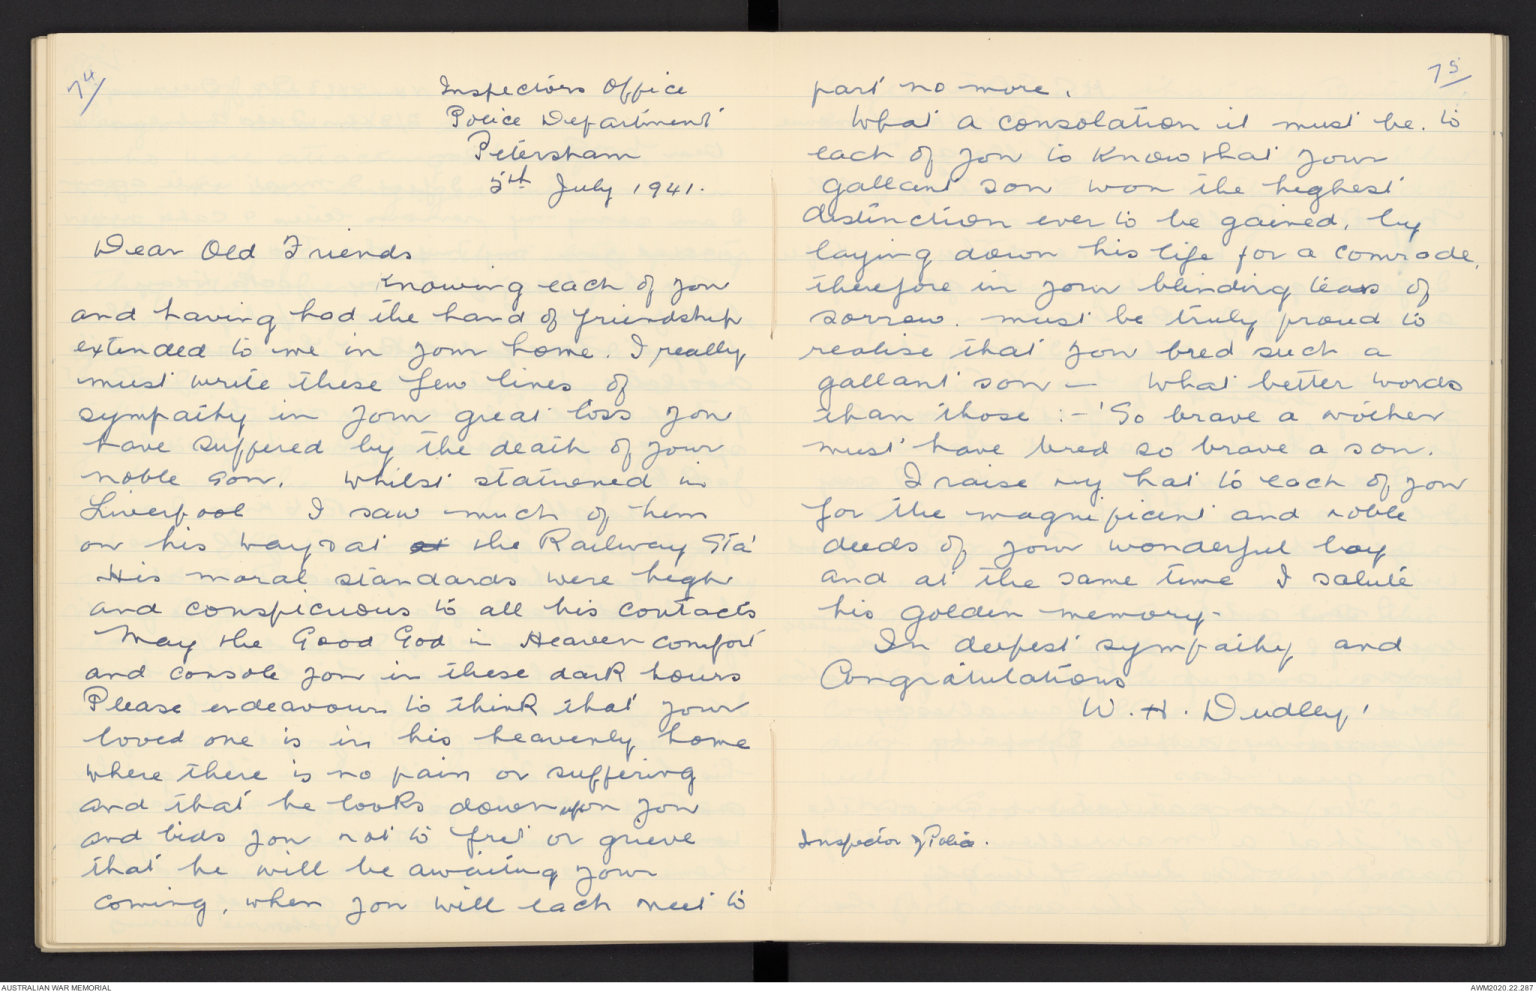 74/
Inspectors Office
Police Department
Petersham
5th July 1941.
Dear Old Friends
Knowing each of you
and having had the hand of friendship
extended to me in your home. I really
must write these few lines of
sympathy in your great loss you
have suffered by the death of your
noble son. Whilst stationed in
Liverpool I saw much of him
on his way at the Railway Sta'
His moral standards were high
and conspicuous to all his contacts
May the Good God in Heaven comfort
and console you in these dark hours
Please endeavour to think that your
loved one is in his heavenly home
where there is no pain or suffering
and that he looks down upon you
and bids you not to fret or grieve
that he will be awaiting your
coming, when you will each meet to
75/
part no more.
What a consolation it must be. to
each of you to know that your
gallant son won the highest
distinction ever to be gained, by
laying down his life for a comrade,
therefore in your blinding tears of
sorrow. must be truly proud to
realise that you bred such a
gallant son — What better words
than those :- 'So brave a mother
must have bred so brave a son.
I raise my hat to each of you
for the magnificent and noble
deeds of your wonderful boy
and at the same time I salute
his golden memory-
In deepest sympathy and
Congratulations
W. H. Dudley.
Inspector of Police.
AUSTRALIAN WAR MEMORIAL
AWM2020.22.287